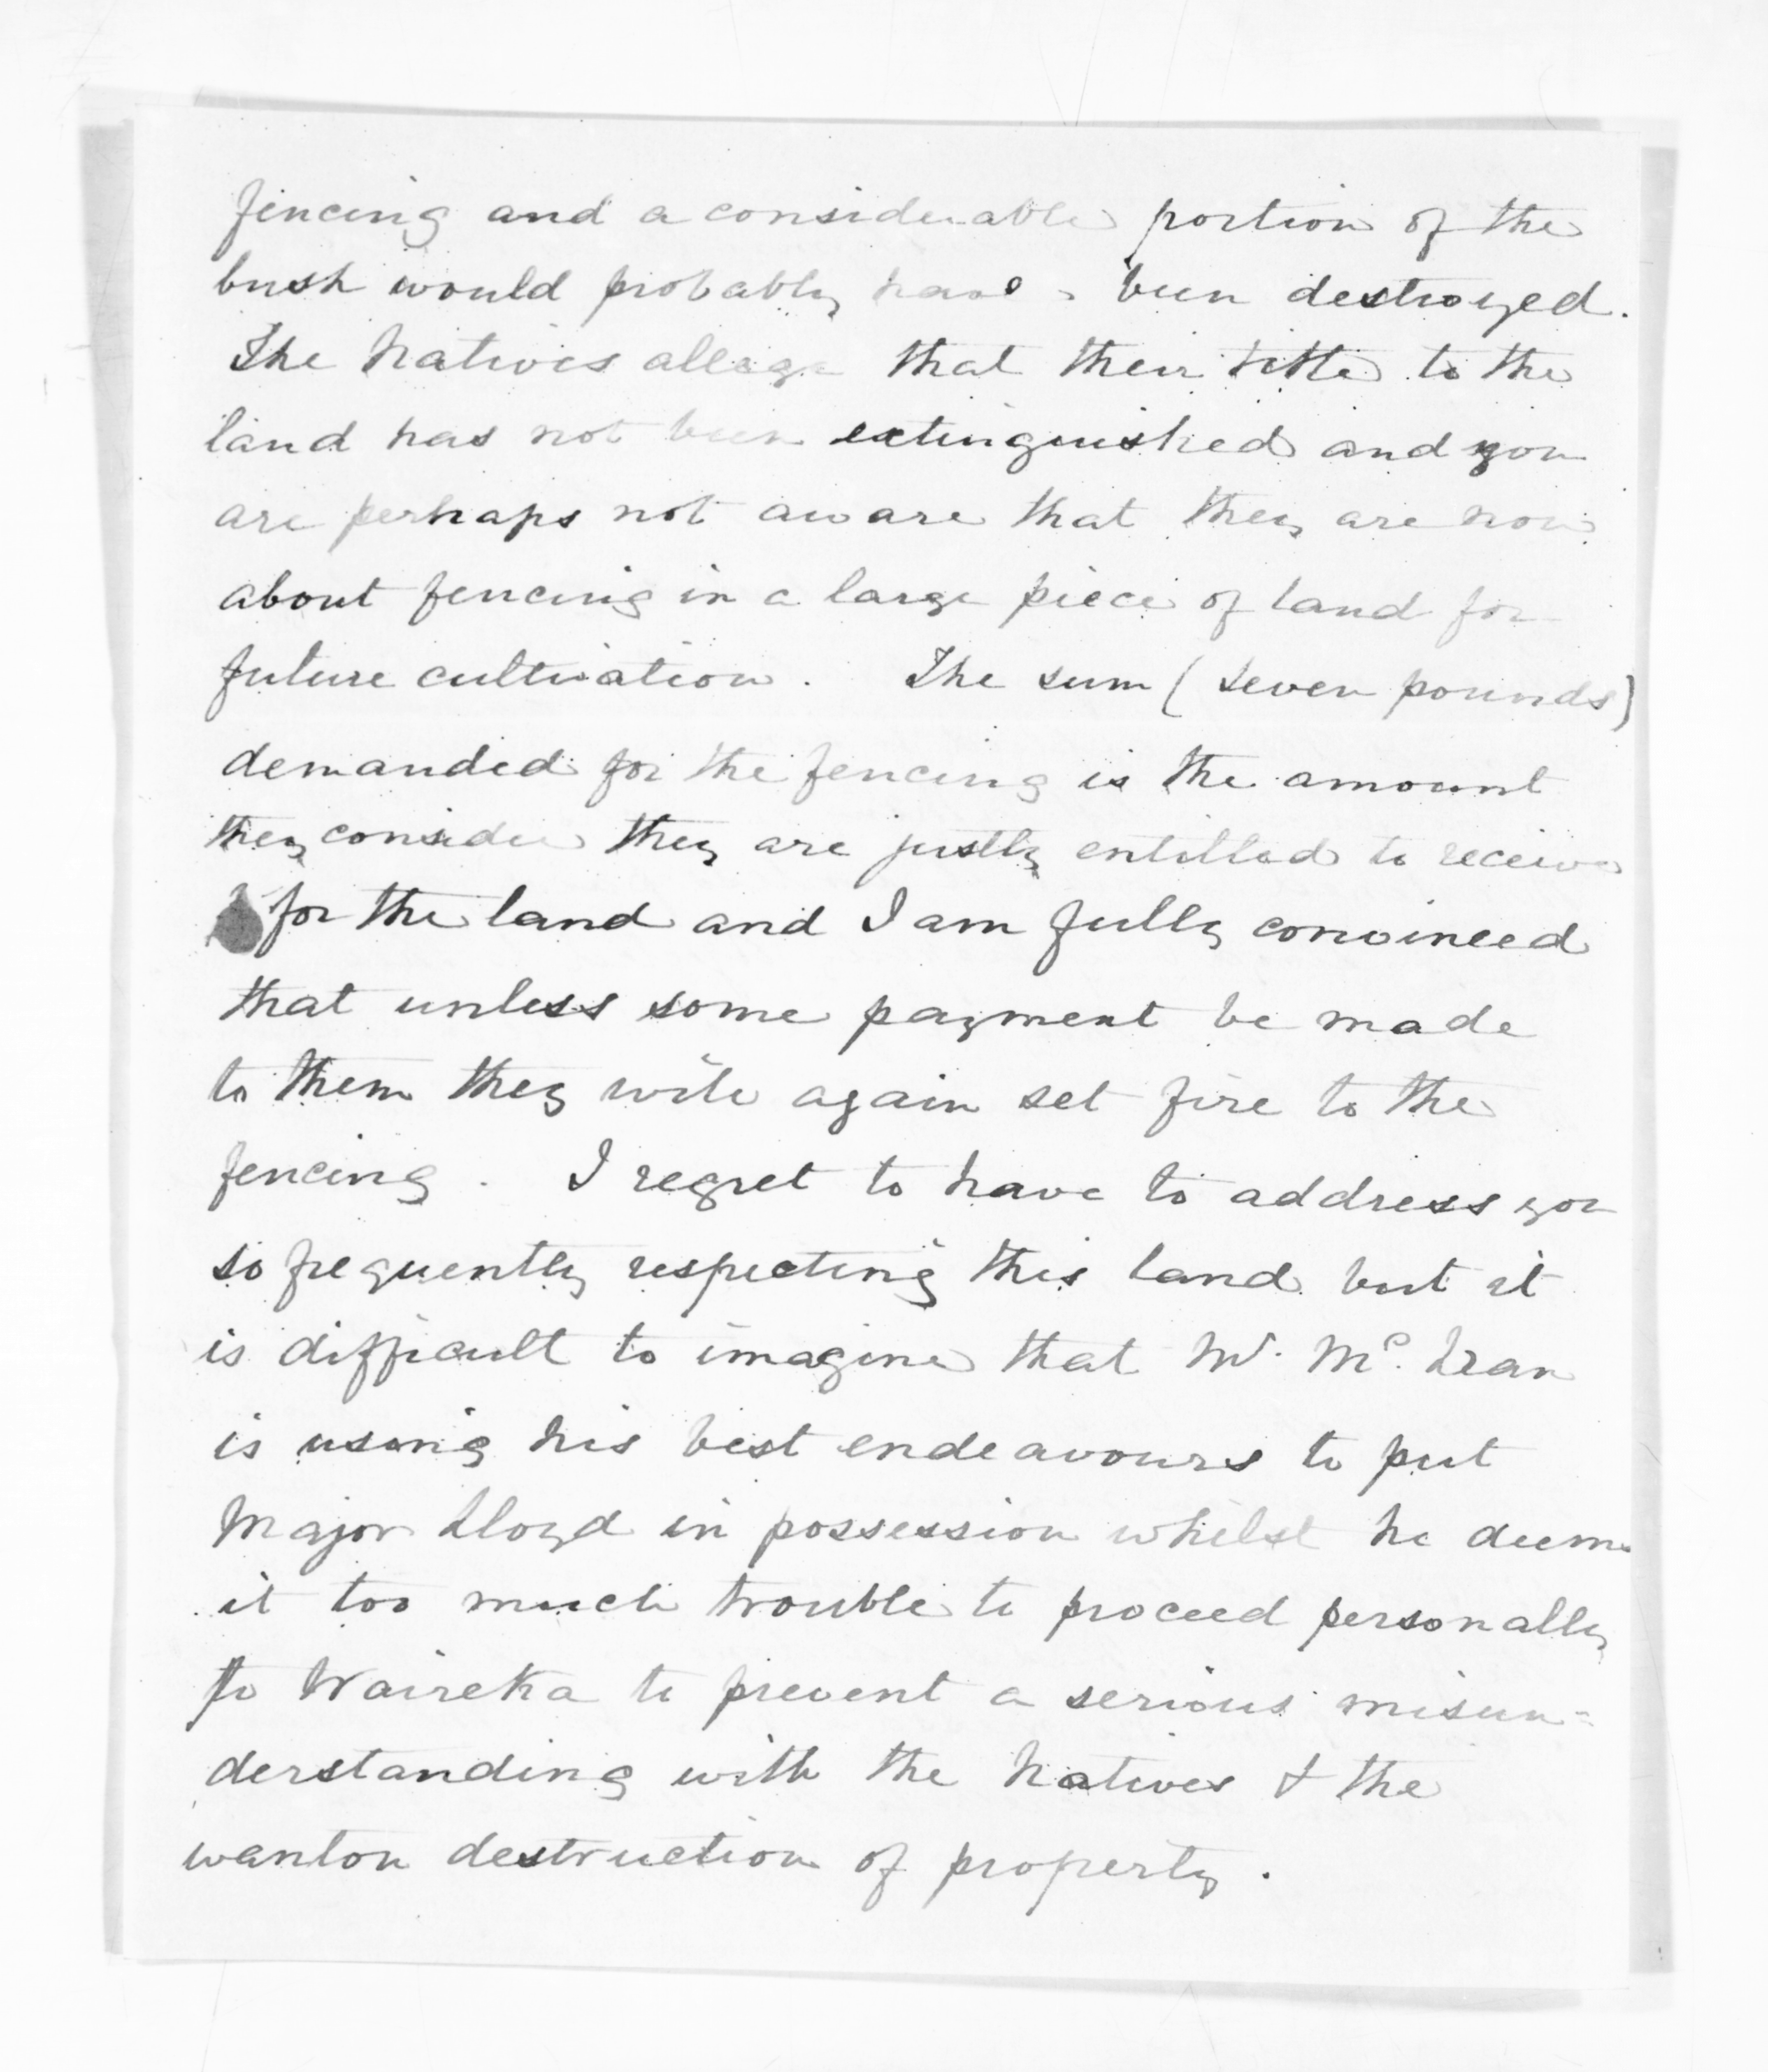 fencing and a considerable portion of the
bush would probably have been destroyed.
The Natives allege that their title to the
land has not been extinguished and you
are perhaps not aware that they are now
about fencing in a large piece of land for
future cultivation. The sum (seven pounds)
demanded for the fencing is the amount
they consider they are justly entitled to receive
for the land and I am fully convinced
that unless some payment be made
to them they will again set fire to the
fencing. I regret to have to address you
so frequently respecting this land but it
is difficult to imagine that Mr. Mc. Lean
is using his best endeavours to put
Major Lloyd in possession whilst he deems
it too much trouble to proceed personally
to Waireka to prevent a serious misun=
derstanding with the Natives & the
wanton destruction of property.